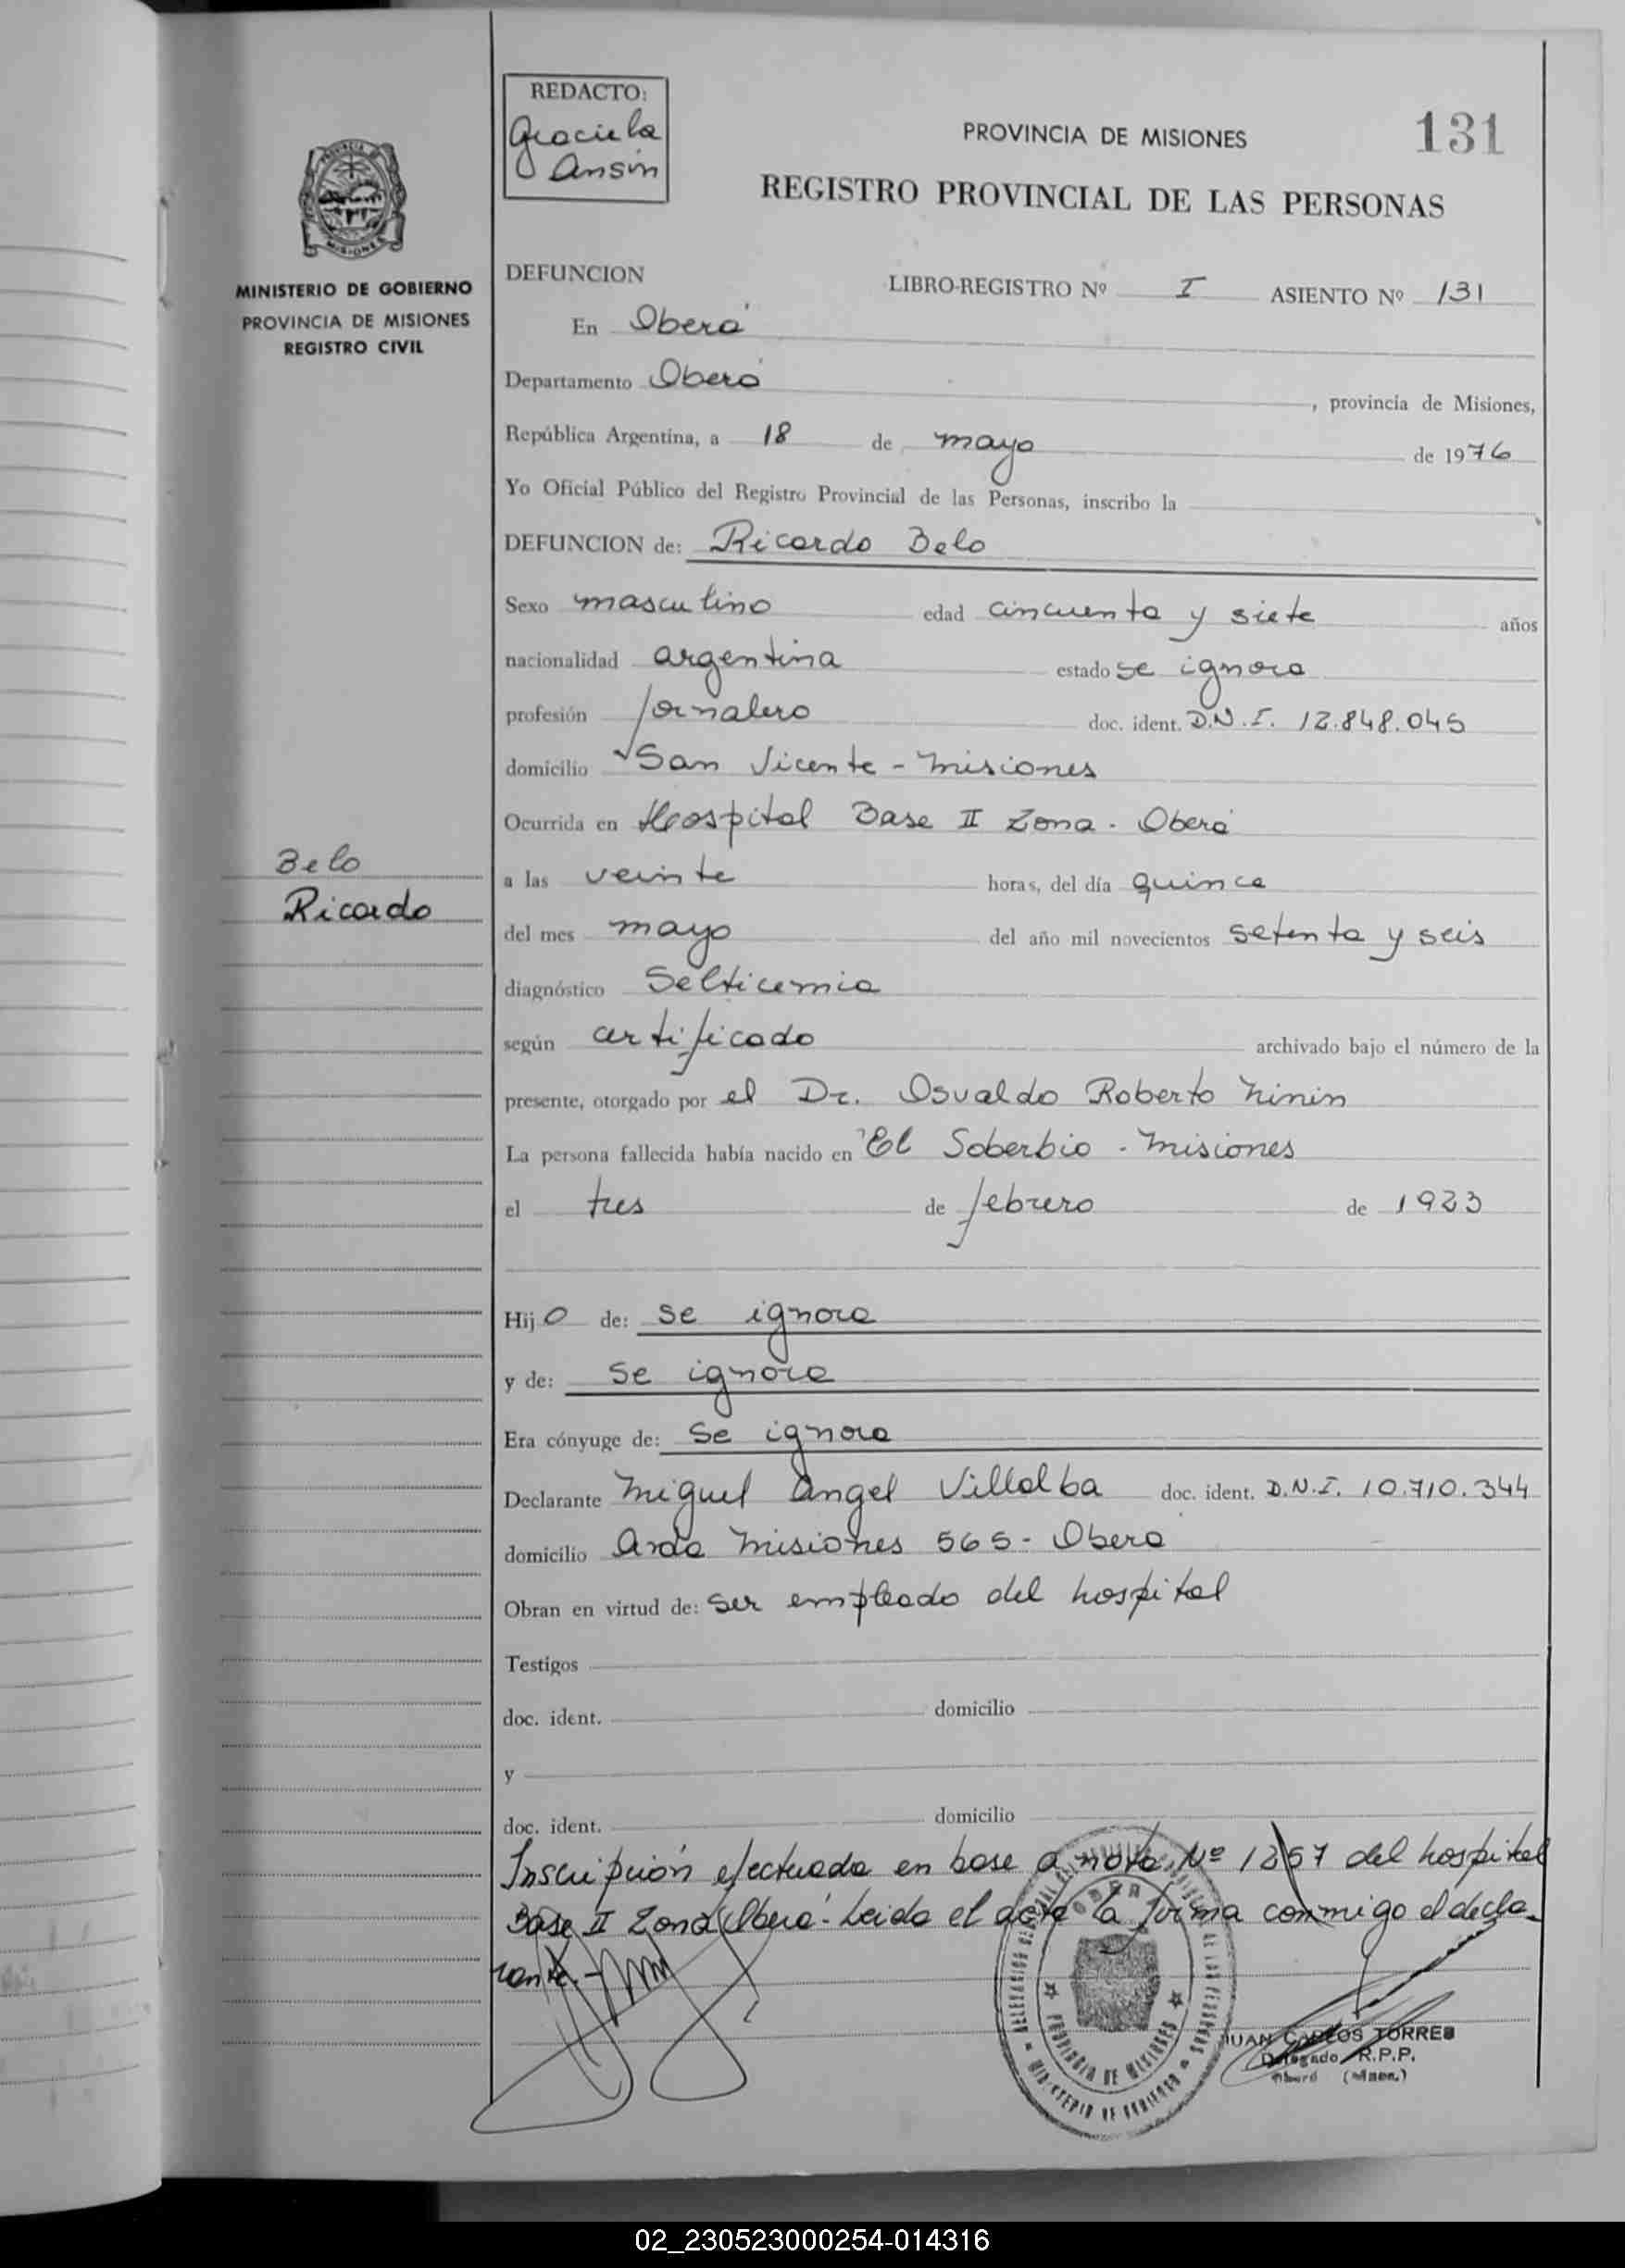 REDACTO:
Graciela
Ansin
PROVINCIA DE MISIONES
131
REGISTRO PROVINCIAL DE LAS PERSONAS
MISIONES
MINISTERIO DE GOBIERNO
PROVINCIA DE MISIONES
REGISTRO CIVIL
DEFUNCION LIBRO-REGISTRO Nº I ASIENTO Nº 131
En Oberá
Departamento Oberá, provincia de Misiones,
República Argentina, a 18 de mayo de 1976
Yo Oficial Público del Registro Provincial de las Personas, inscribo la
DEFUNCION de: Ricardo Belo
Sexo masculino edad cincuenta y siete años
nacionalidad argentina estado se ignora
profesión jornalero doc. ident. D.N.I. 12.848.045
domicilio San Vicente - Misiones
Ocurrida en Hospital Base II Zona - Oberá
Belo
Ricardo
a las veinte horas, del día quince
del mes mayo del año mil novecientos setenta y seis
diagnóstico Selticemia
según certificado archivado bajo el número de la
presente, otorgado por el Dr. Osvaldo Roberto Ninin
La persona fallecida había nacido en El Soberbio - Misiones
el tres de febrero de 1923
Hijo de: se ignora
y de: se ignora
Era cónyuge de: se ignora
Declarante Miguel Angel Villalba doc. ident. D.N.I. 10.710.344
domicilio Avda Misiones 565 - Oberá
Obran en virtud de: ser empleado del hospital
Testigos
doc. ident. domicilio
y
doc. ident. domicilio
Inscripción efectuada en base a nota Nº 1267 del hospital
Base II Zona Oberá. Leida el acta la firma conmigo el decla-
rante.-
PROVINCIA DE MISIONES
MINISTERIO DE GOBIERNO
JUAN CARLOS TORRES
Delegado R.P.P.
Oberá (Mnes.)
02_230523000254-014316